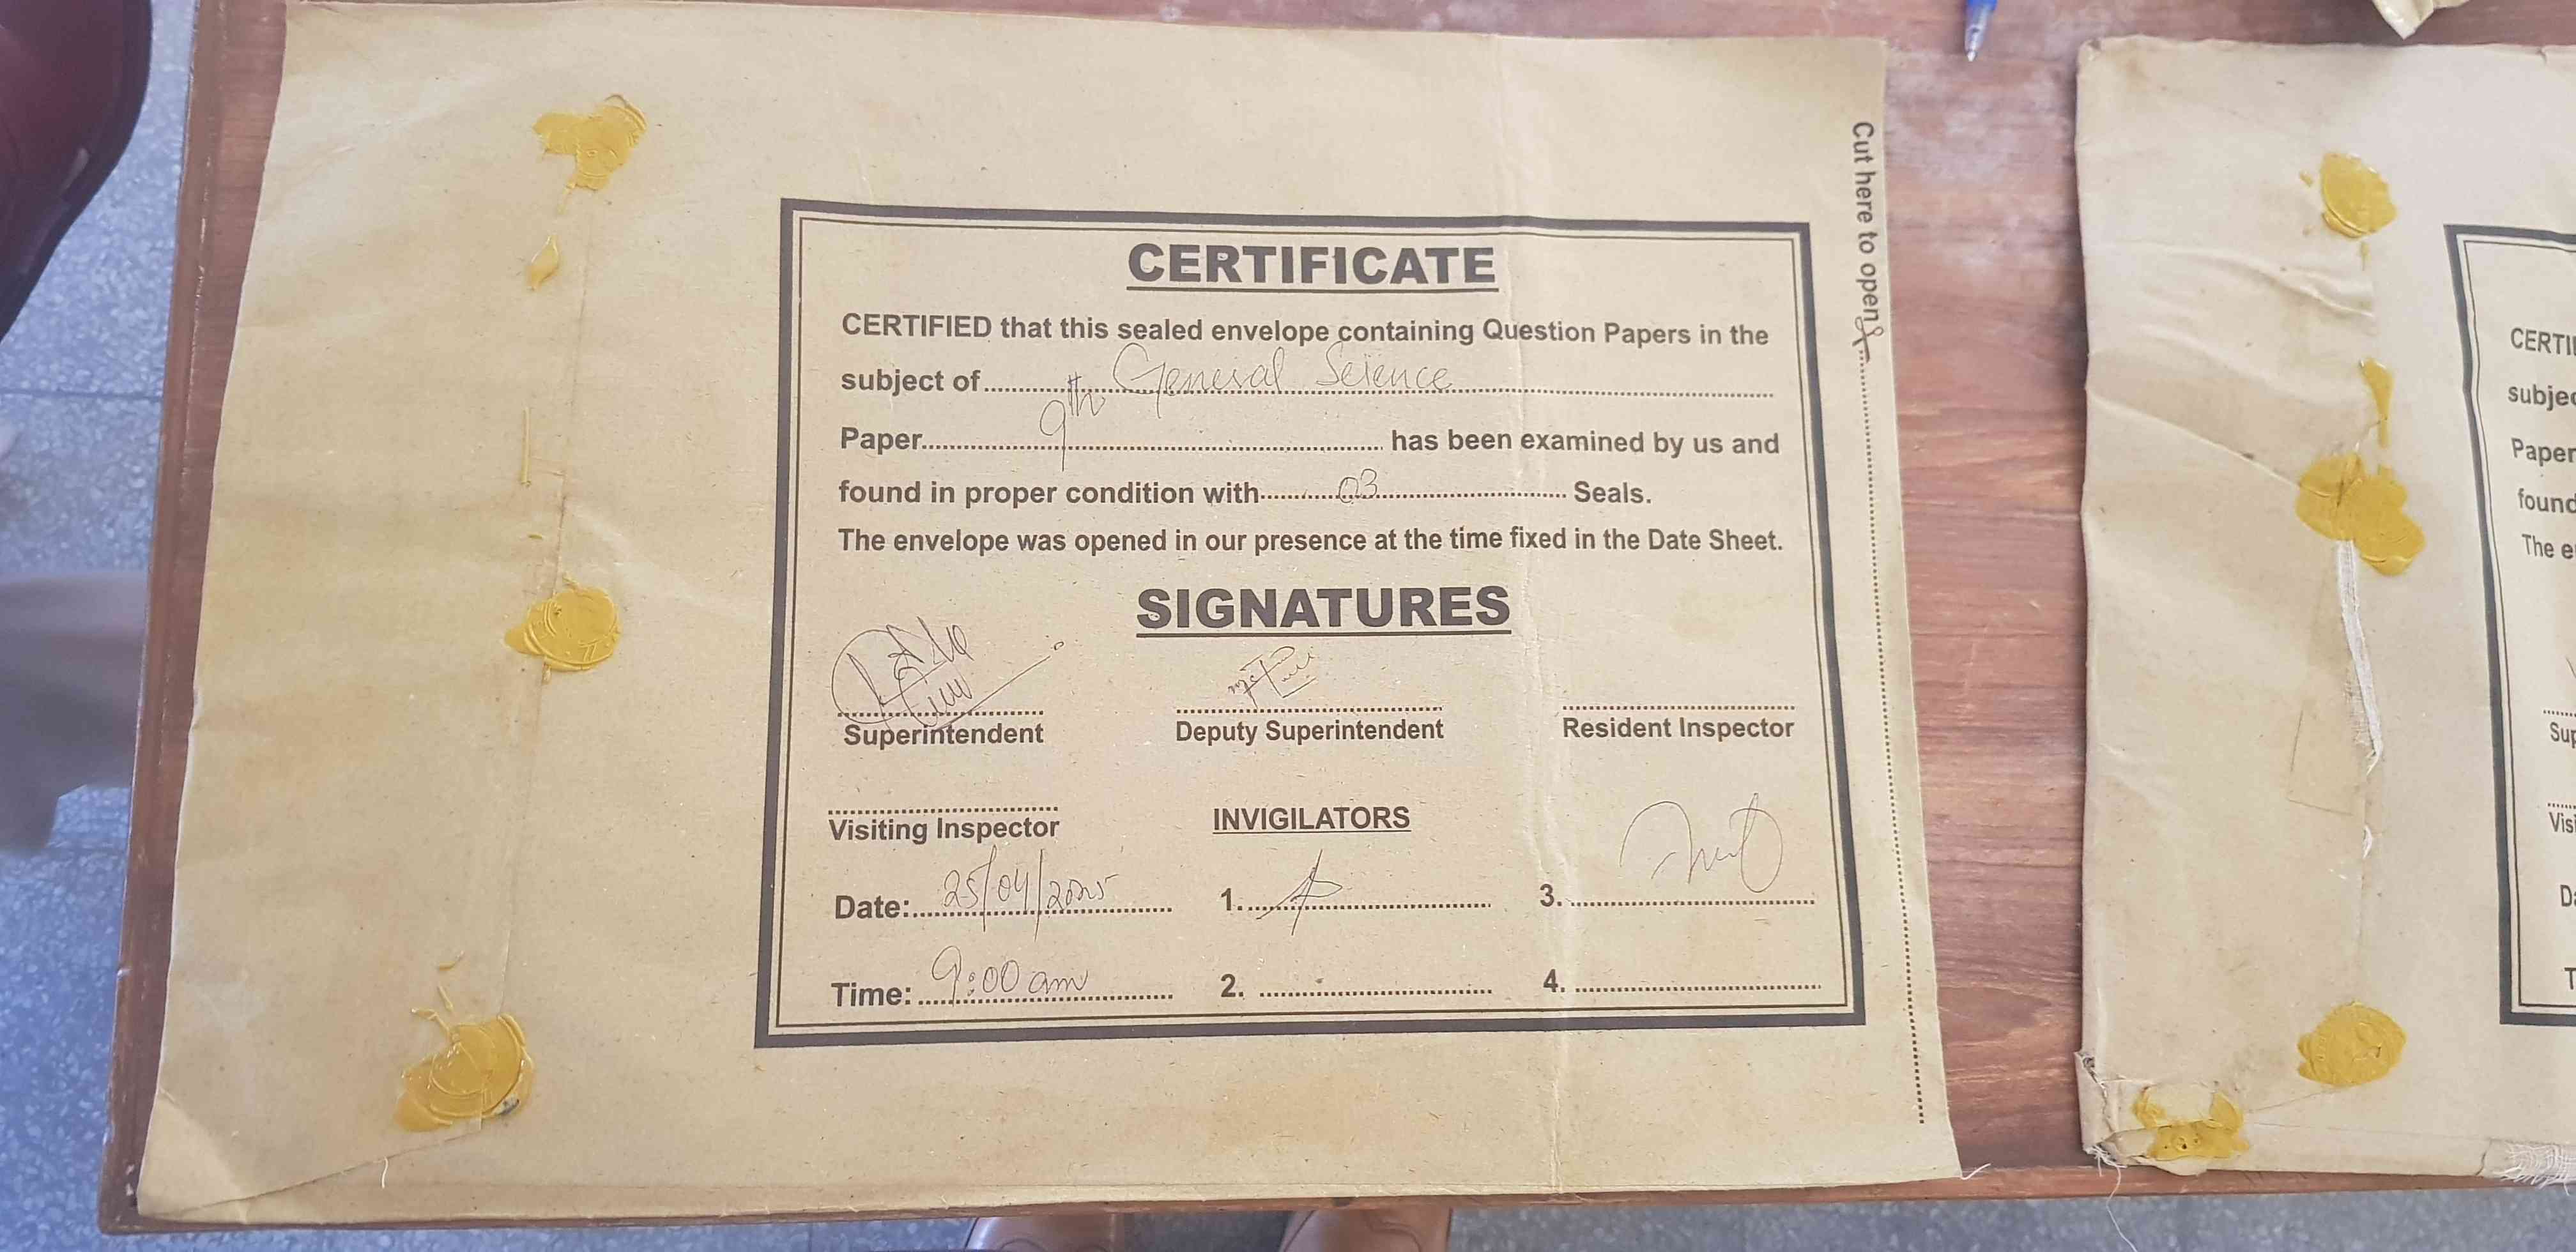 CERTIFICATE
CERTIFIED that this sealed envelope containing Question Papers in the
subject of General Science
Paper 9th has been examined by us and
found in proper condition with 03 Seals.
The envelope was opened in our presence at the time fixed in the Date Sheet.
SIGNATURES
Superintendent Deputy Superintendent Resident Inspector
Visiting Inspector INVIGILATORS
Date: 25/04/2025 1. 3.
Time: 9:00 am 2. 4.
Cut here to open
CERTI
subjec
Paper
found
The e
Sup
Visi
Da
T